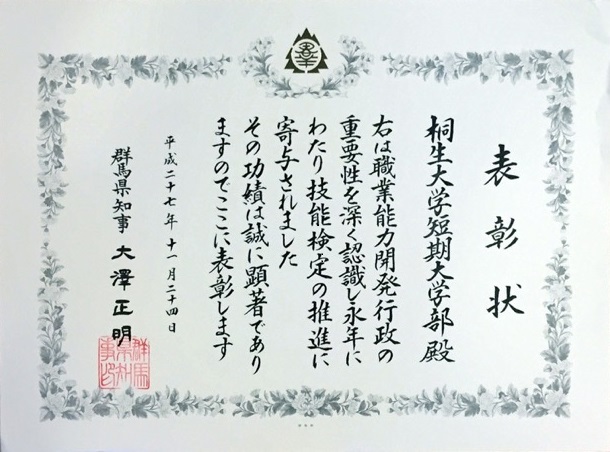 表彰状
桐生大学短期大学部殿
右は職業能力開発行政の
重要性を深く認識し永年に
わたり技能検定の推進に
寄与されました
その功績は誠に顕著であり
ますのでここに表彰します
平成二十七年十一月二十四日
群馬県知事 大澤正明
群馬
県知
事印